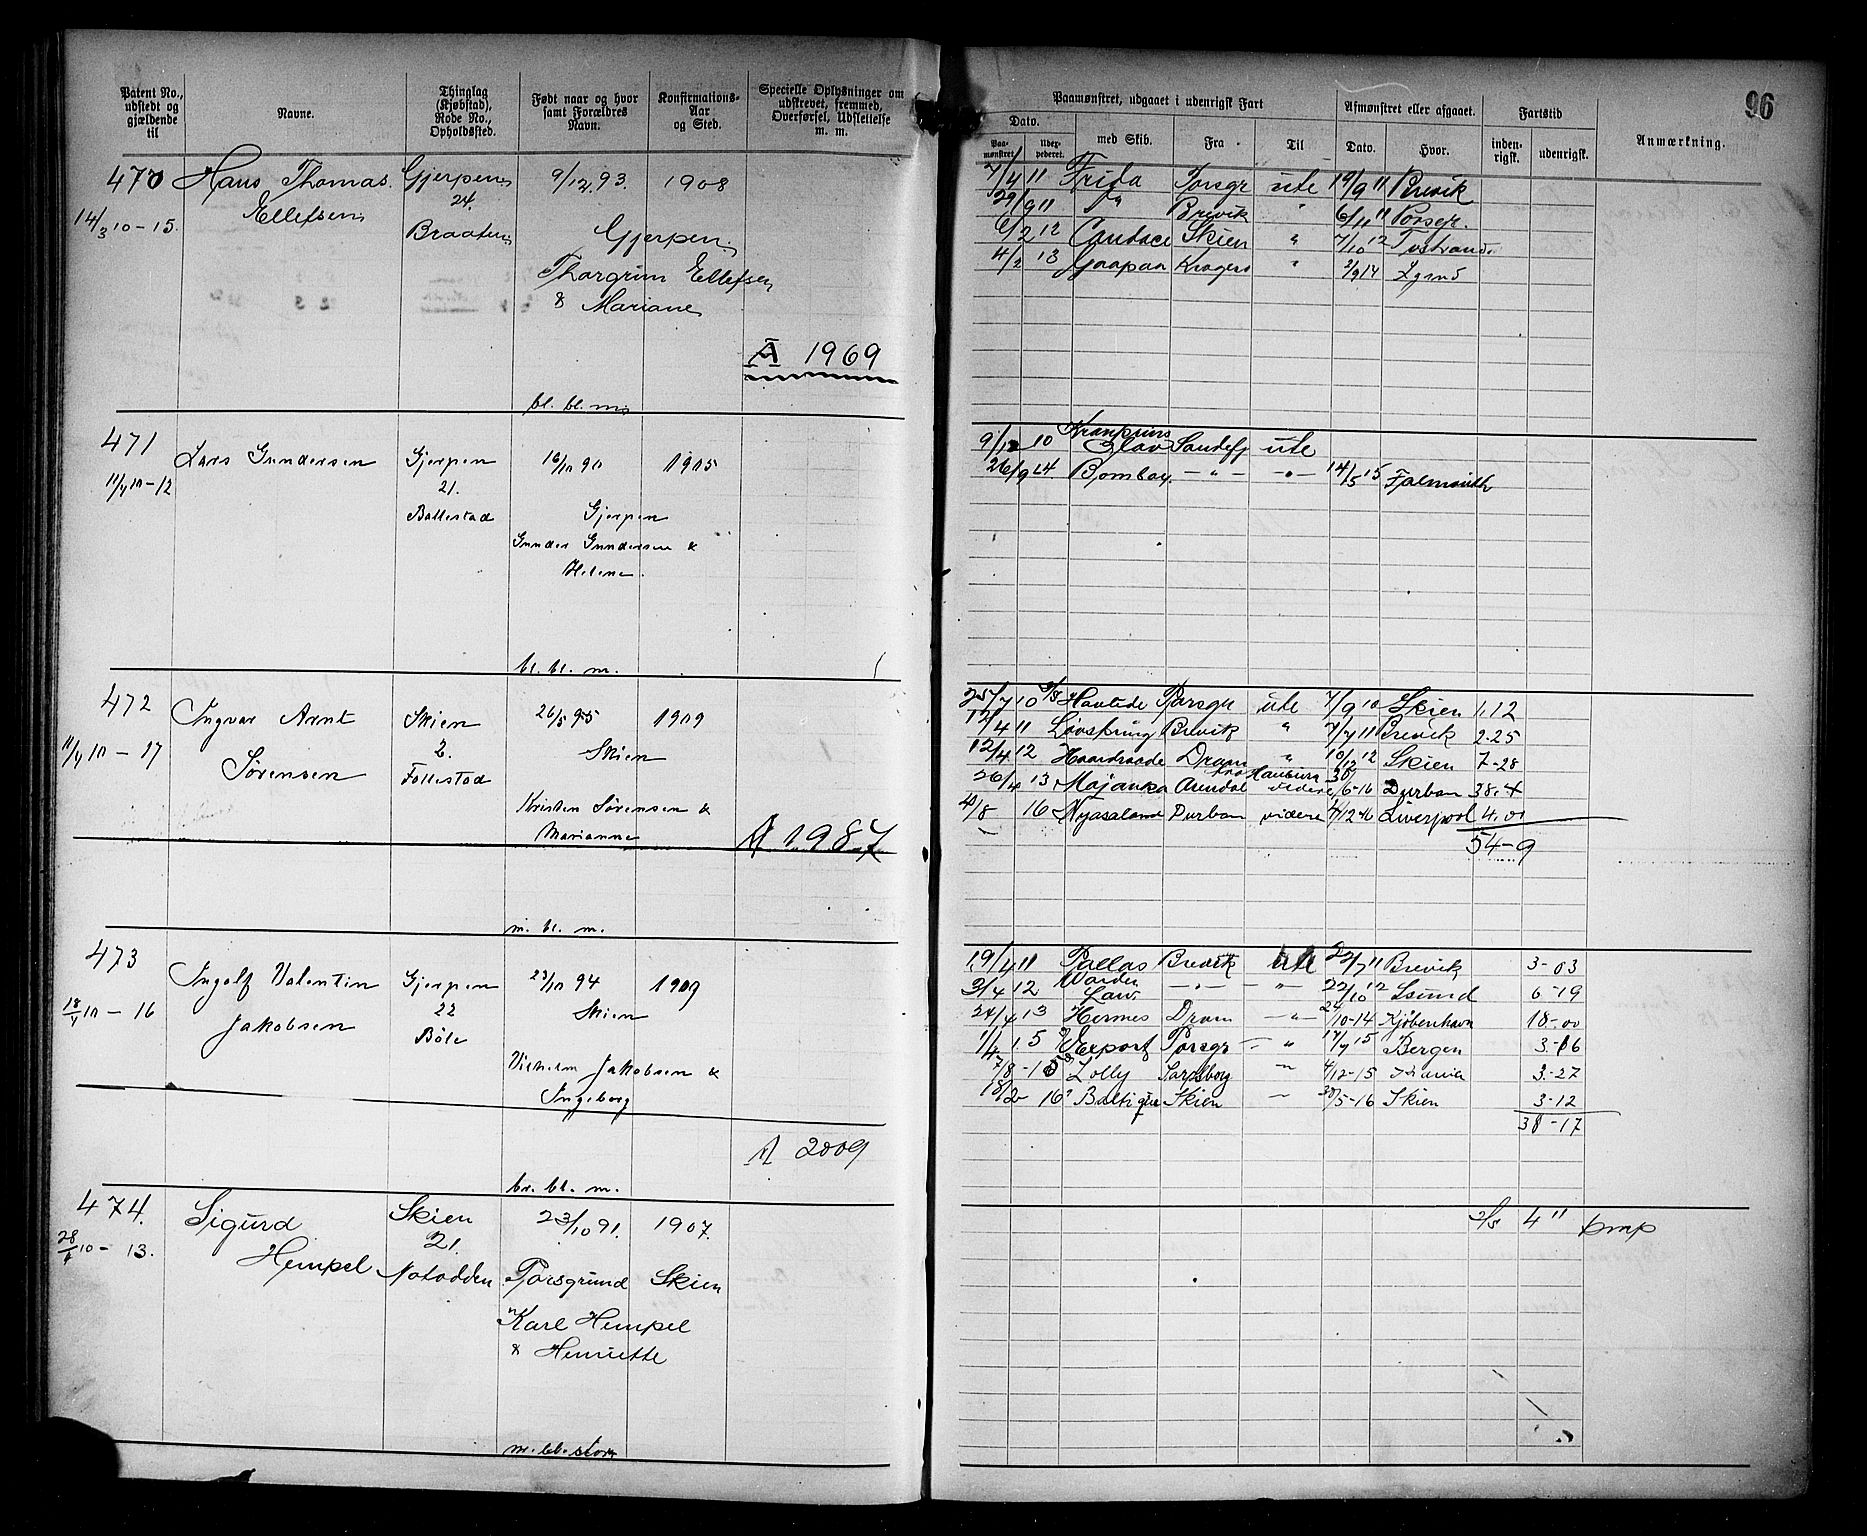 96
Patent No., udstedt og gjældende til
Navne.
Thinglag (Kjøbstad), Rode No., Opholdssted.
Født naar og hvor samt Forældres Navn.
Konfirmations-Aar og Sted.
Specielle Oplysninger om udskrevet, fremmed, Overførsel, Udslettelse m. m.
Paamønstret, udgaaet i udenrigsk Fart
Dato.
Paamønstret.
Udexpederet.
med Skib.
Fra
Til
Afmønstret eller afgaaet.
Dato.
Hvor.
Fartstid
indenrigsk.
udenrigsk.
Anmærkning.
470 Hans Thomas Gjerpen 9/12 93. 1908
14/3 10-15. Ellefsen 24.
Braaten Gjerpen
Thorgrim Ellefsen
& Mariane
A 1969
bl. bl. m
7/4 11 Frida Porsgr ute 19/9 11 Brevik
29/9 11 " Brevik " 6/11 11 Porsgr.
6/2 12 Candace Skien " 7/10 12
4/2 13 Kragerø " 2/9 14
471 Lars Gundersen Gjerpen 16/10 90 1905
11/4 10-12 21.
Ballestad Gjerpen
Gunder Gundersen &
Helene.
bl. bl. m.
9/12 10 Kronprins Olav Sandefj ute
26/9 14. Bombay - " - - " - 14/5 15 Falmouth
472 Ingvar Arnt Skien 26/5 95 1909
11/4 10-17 Sørensen 2. Skien
Follestad
Kristen Sørensen &
Marianne
A 1987
m. bl. m.
25/7 10 Havtide Porsgr ute 7/9 10 Skien 1.12
12/4 11 Løvspring Brevik " 7/7 11 Brevik 2-25
12/4 12 Haardraade Dram " 10/12 12 Skien 7-28
26/4 13 Majanka Arendal videre 30/6-16 Durban 38.4
4/8 16 Nyasaland Durban videre 4/12 16 Liverpool 4.01
54-9
473 Ingolf Valentin Gjerpen 23/10 94 1909
18/4 10-16 Jakobsen 22 Skien
Bøle
Vilhelm Jakobsen &
Ingeborg
A 2009
br. bl. m.
19/4 11 Pallas Brevik ute 22/7 11 Brevik 3-03
3/4 12 Warden Law. - " - - " - 22/10 12 6-19
24/4 13 Hermes Dram - " - 24/10-14 Kjøbenhavn 18-00
1/4 15 Export Porsgr - " 17/7 15 Bergen 3-16
7/8-15 Zolly Sarpsborg - " 4/12-15 3-27
18/2 16 Baltique Skien - 30/5-16 Skien 3-12
38-17
474. Sigurd Skien 23/10 91. 1907.
28/4 10-13. Hempel 21.
Notodden Porsgrund Skien
Karl Hempel
& Henriette
m. bl. stor
2/5 4 11